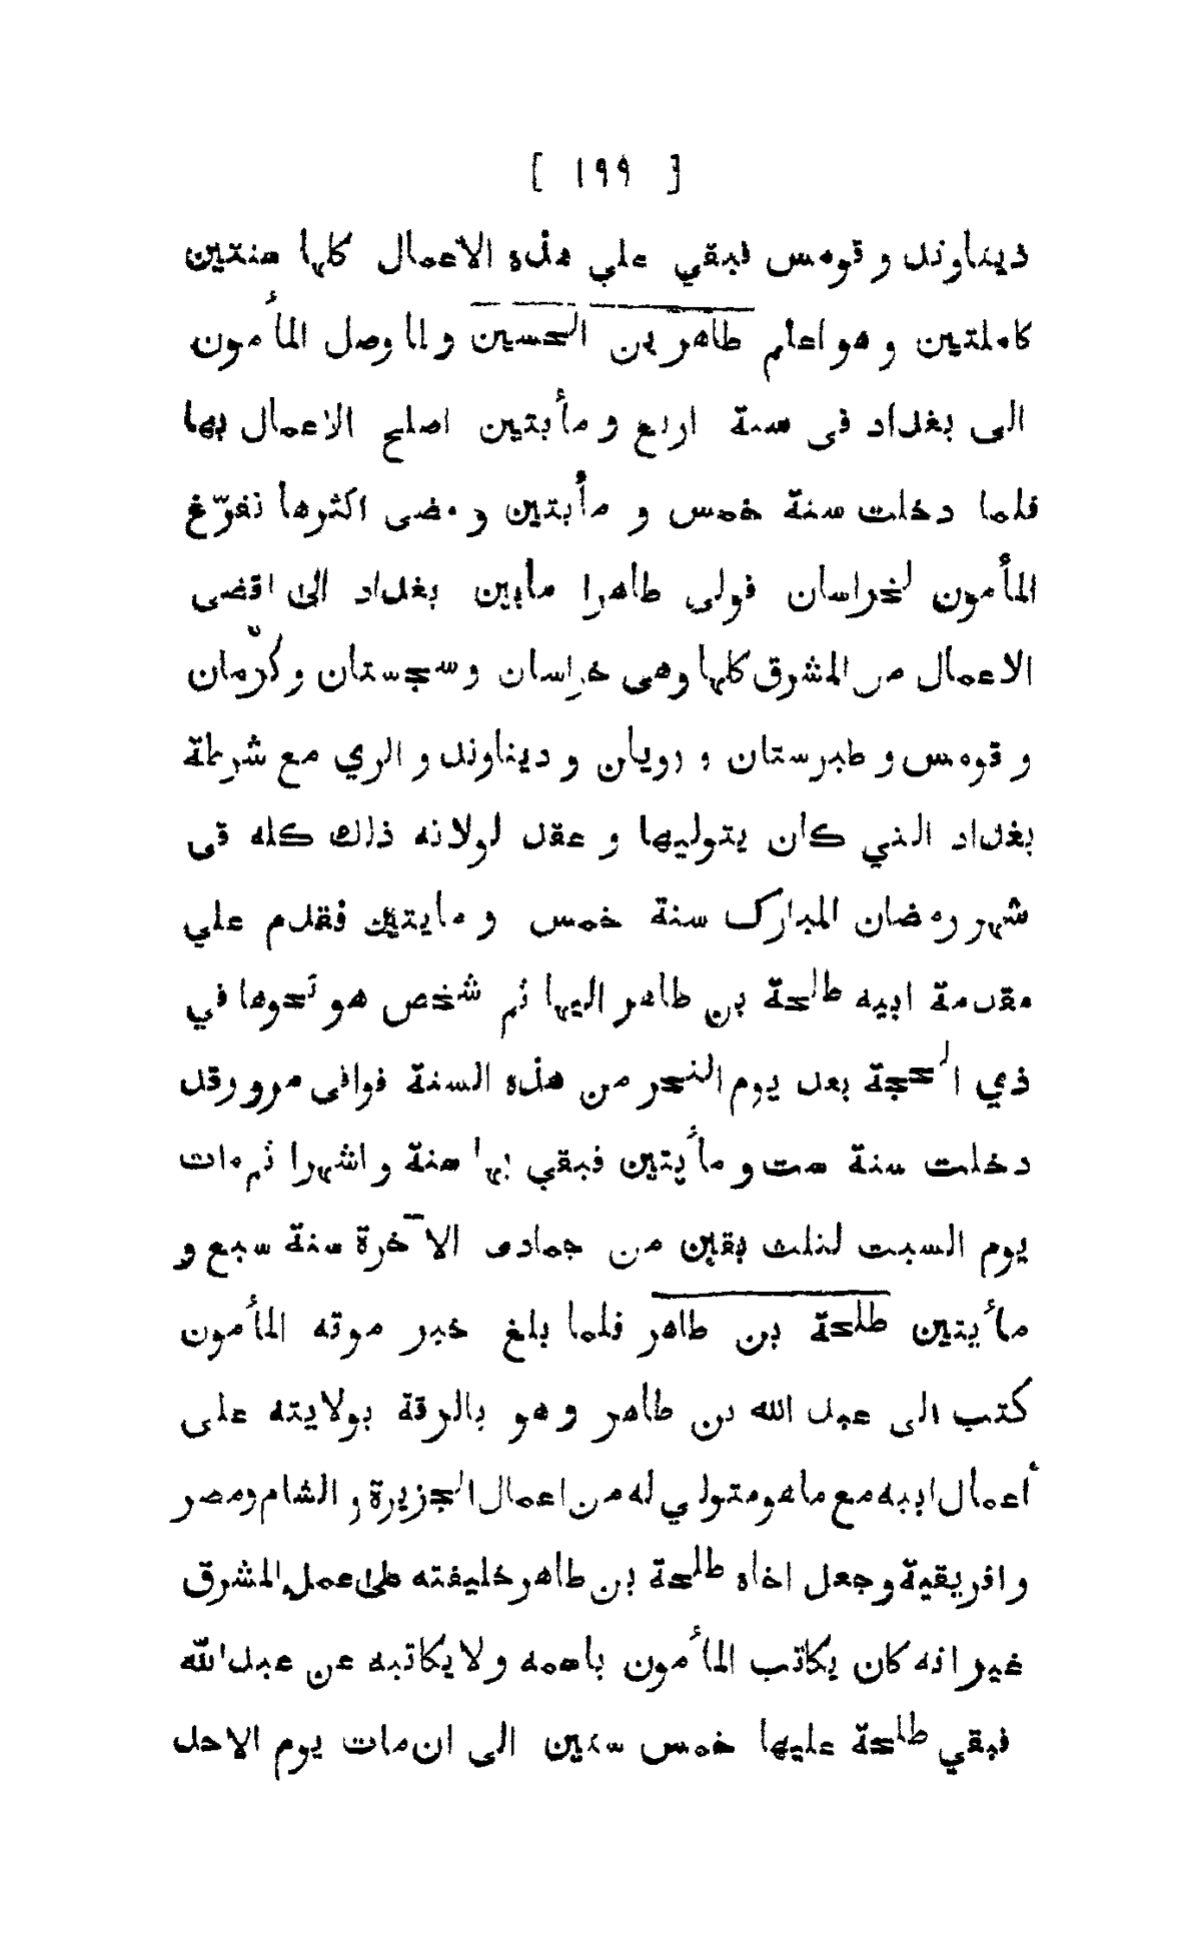 [ ١٩٩ ]
دیناوند و قومس فبقي علي هذه الاعمال كلها سنتين
كاملتين و هو اعلم طاهر بن الحسين و لما وصل المأمون
الى بغداد فى سنة اربع و مأيتين اصلح الاعمال بها
فلما دخلت سنة خمس و مأيتين و مضى اكثرها تفرّغ
المأمون لخراسان فولى طاهرا مابين بغداد الى اقصى
الاعمال من المشرق كلها وهى خراسان و سجستان و كرّمان
و قومس و طبرستان و رويان و ديناوند و الري مع شرطة
بغداد التي كان يتوليها و عقد لولاته ذلك كله فى
شهر رمضان المبارک سنة خمس و مايتين فقدم علي
مقدمة ابيه طلحة بن طاهر اليها ثم شخص هو نحوها في
ذي الحجة بعد يوم النحر من هذه السنة فوافى مرو وقد
دخلت سنة ست و مأيتين فبقي بها سنة و اشهرا ثم مات
يوم السبت لثلث بقين من جمادى الآخرة سنة سبع و
مأيتين طلحة بن طاهر فلما بلغ خبر موته المأمون
كتب الى عبد الله بن طاهر وهو بالرقة بولايته على
أعمال ابيه مع ما هو متولي له من اعمال الجزيرة و الشام ومصر
و افريقية وجعل اخاه طلحة بن طاهر خليفته على عمل المشرق
غير انه كان يكاتب المأمون باسمه ولا يكاتبه عن عبد الله
فبقي طلحة عليها خمس سنين الى ان مات يوم الاحد